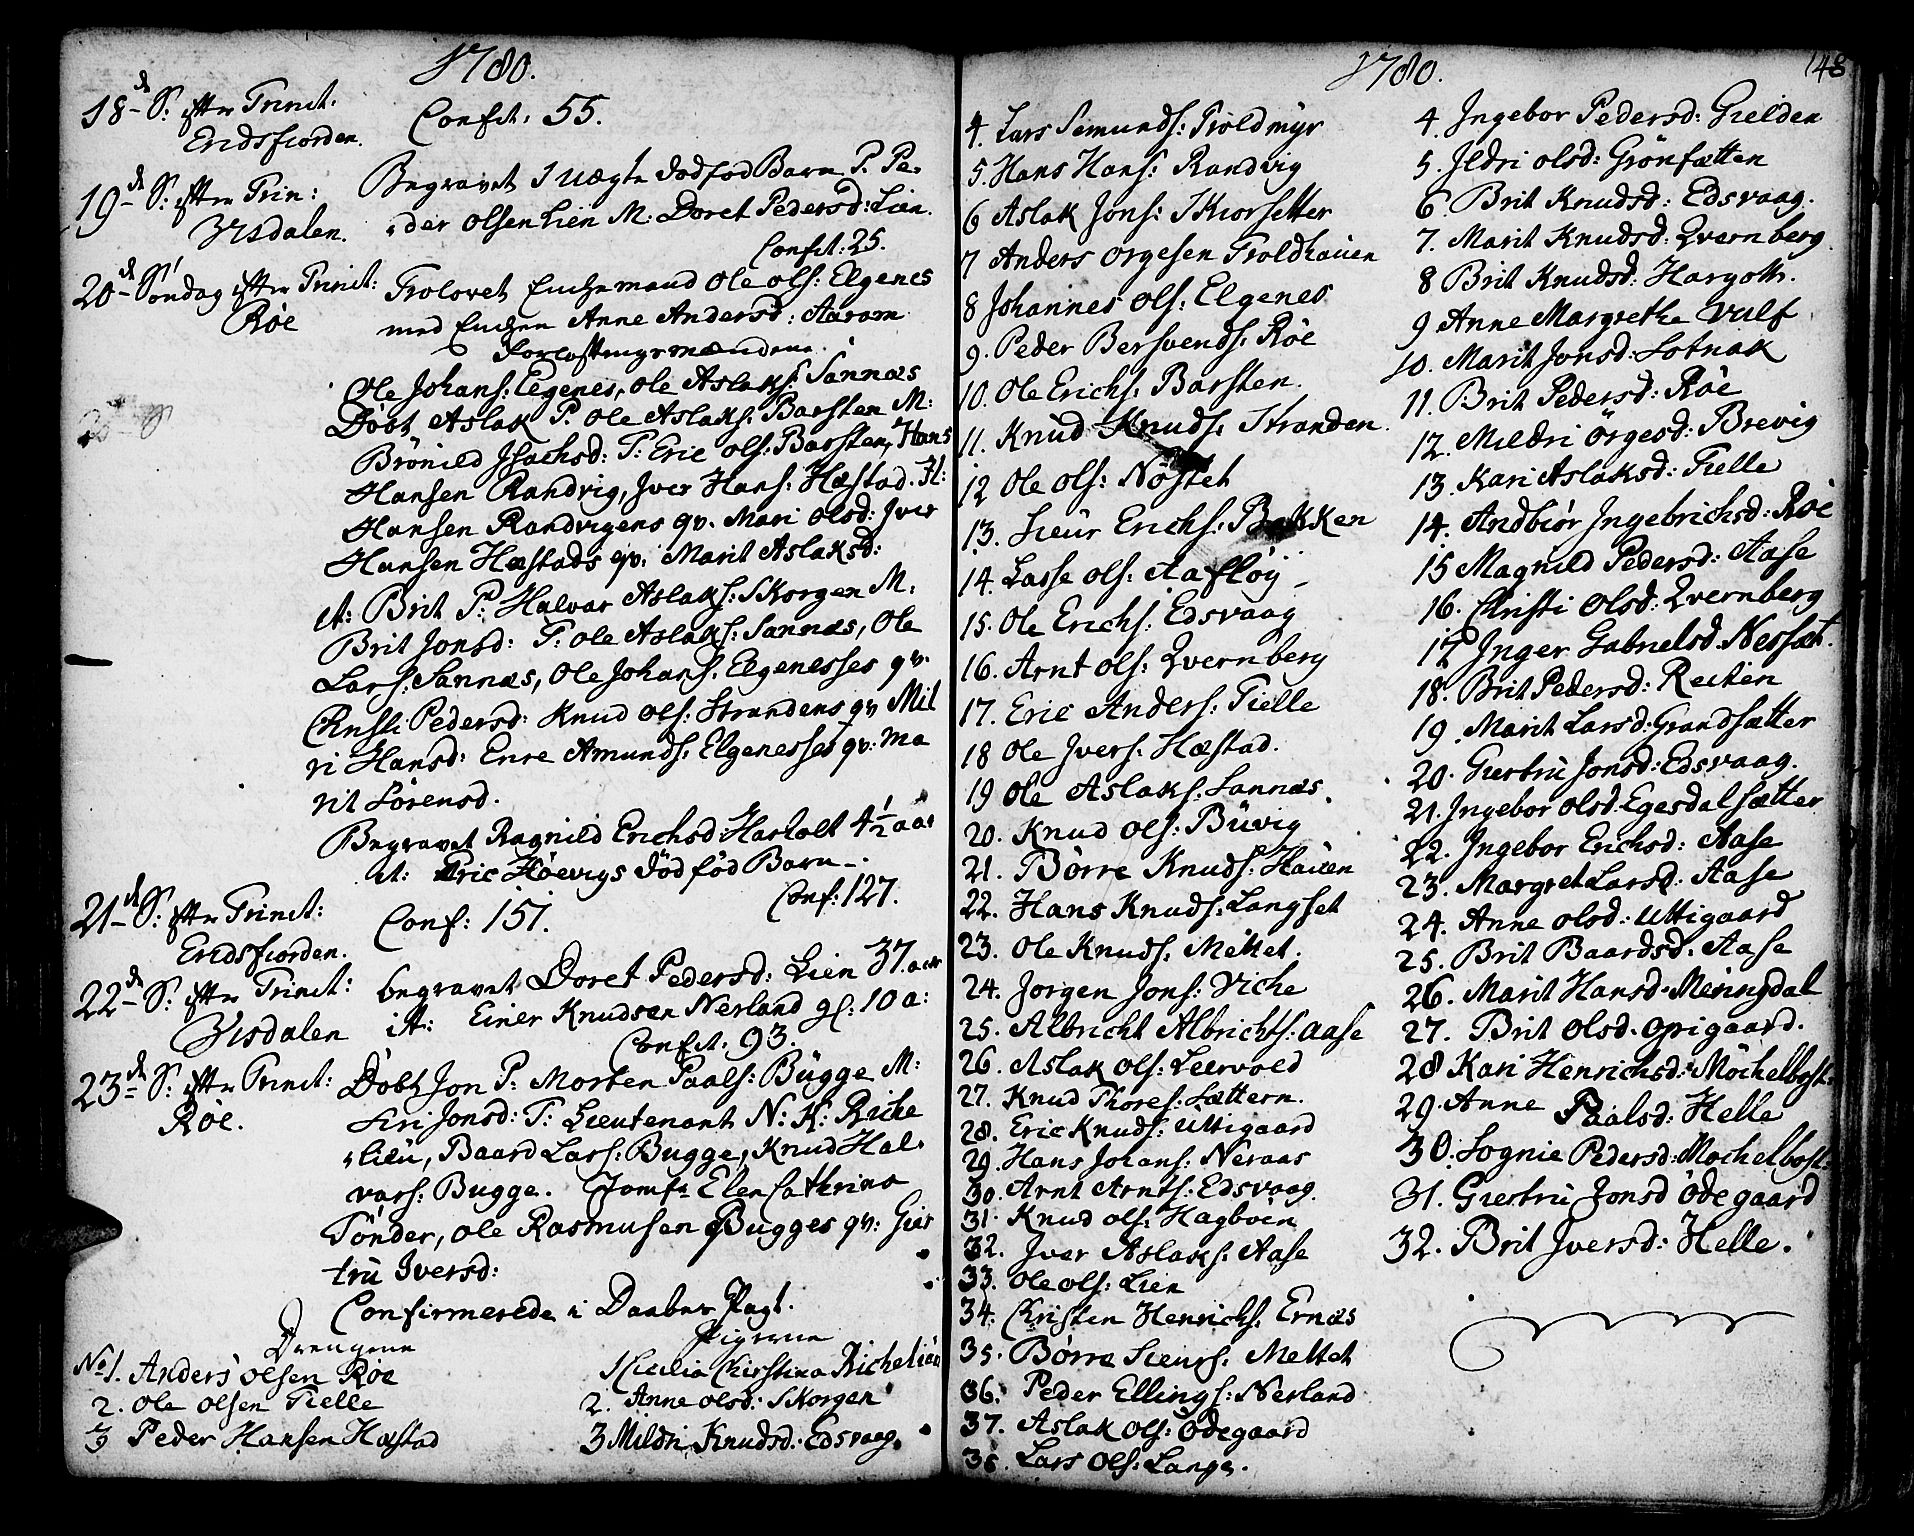 1780.
18de S: efter Trinit:
Eridsfiorden.
Confit: 55.
19de S: efter Trin:
Visdalen.
Begravet 1 uægte dødfød Barn P. Pe-
der Olsen Lien M: Doret Pedersd: Lien.
Confit: 25.
20de Søndag efter Trinit:
Røe
Trolovet Enchemand Ole Ols: Elgenes
med Enchen Anne Andersd: Aaram
Forlostningsmændene:
Ole Johans: Elgenes, Ole Aslaks: Sannæs
Døbt Aslak P. Ole Aslaks: Barsten M:
Brönild Isachsd: T: Eric Ols: Barsten, Hans
Hansen Randvig, Iver Hans: Hæstad. H:
Hansen Randvigens qv. Mari Olsd: Iver
Hansen Hæstads qv: Marit Aslaksd:
it: Brit P: Halvar Aslaks: Skorgen M:
Brit Jonsd: T: Ole Aslaks: Sannæs, Ole
Lars: Sannæs, Ole Johans: Elgenesses qv.
Christi Pedersd: Knud Ols: Strandens qv Mil
ri Hansd: Enre Amunds: Elgenesses qv: Ma
rit Sörensd.
Begravet Ragnild Erichsd Hasholt 4 1/2 aar
it: Eric Höevigs dödföd Barn.
Conf: 127.
21de S: efter Trinit:
Eridsfiorden.
Conf: 151.
22de S: efter Trinit:
Visdalen
begravet Doret Pedersd: Lien 37 aar
it: Einer Knudsen Nerland gl: 10 a:
Confit: 93.
23de S: efter Trinit:
Røe.
Døbt Jon P: Morten Paals: Bügge M:
Siri Jonsd: T: Lieutenant N: K: Riche
lieü, Baard Lars: Bugge, Knud Hal-
vars: Bugge. Jomfr Elen Cathrina
Tönder, Ole Rasmusen Bugges qv: Gier
trü Iversd:
Confirmerede i Daabens Pagt.
Drengene
No 1. Anders Olsen Röe
2. Ole Olsen Tielle
3 Peder Hansen Hæstad
Pigerne
1 Cicilia Christina Richelieü
2. Anne Olsd: Skorgen
3 Mildri Knudsd: Edsvaag.
1780.
148
4. Lars Semunds: Troldmyr
5. Hans Hans: Randvig
6 Aslak Jons: Skiorsetter
7 Anders Örgesen Troldhauen
8 Johannes Ols: Elgenes
9. Peder Bersvends: Röe
10. Ole Erichs: Barsten.
11. Knud Knuds: Stranden
12 Ole Ols: Nöstet
13. Sieur Erichs: Bakken
14. Lasse Ols: Aaflöy
15. Ole Erichs: Edsvaag
16. Arnt Ols: Qvernberg
17. Eric Anders: Tielle
18 Ole Ivers: Hæstad.
19 Ole Aslaks: Sannæs.
20. Knud Ols: Büvig
21. Börre Knuds: Hauen
22. Hans Knuds: Langset
23. Ole Knuds: Mettet.
24. Jörgen Jons: Viche
25. Albricht Albrichts: Aase
26. Aslak Ols: Leervold
27. Knud Thores: Sættern.
28. Eric Knuds: Uttigaard
29. Hans Johans: Neraas
30. Arnt Arnts: Edsvaag.
31. Knud Ols: Hagböen
32. Iver Aslaks: Aase
33. Ole Ols: Lien
34. Christen Henrichs: Ernæs
35. Börre Sieurs: Mettet
36. Peder Ellings: Nerland
37. Aslak Ols: Ödegaard
38. Lars Ols: Lange.
4. Ingebor Pedersd: Gielden
5. Ildri Olsd: Grönsætten
6. Brit Knudsd: Edsvaag.
7. Marit Knudsd: Qvernberg
8 Brit Knudsd: Hargoth.
9 Anne Margrethe Vulf
10. Marit Jonsd: Sotnak
11. Brit Pedersd: Röe
12. Mildri Örgesd: Brevig
13. Kari Aslaksd: Tielle
14. Andbiör Ingebrichsd: Röe
15 Magnild Pedersd: Aase
16. Christi Olsd: Qvernberg
17 Inger Gabrielsd. Nessæt.
18. Brit Pedersd: Reiten
19. Marit Larsd: Grandsætter
20. Giertrü Jonsd: Edsvaag.
21. Ingebor Olsd. Egesdalsætter
22. Ingebor Erichsd: Aase
23. Margret Larsd: Aase
24. Anne Olsd: Uttigaard
25. Brit Baardsd: Aase
26. Marit Hansd: Meringdal
27. Brit Olsd. Opigaard.
28 Kari Henrichsd: Möchelbost:
29. Anne Paalsd: Helle
30. Sognie Pedersd: Möchelbost:
31. Giertrü Jonsd Ödegaard
32. Brit Iversd: Helle.